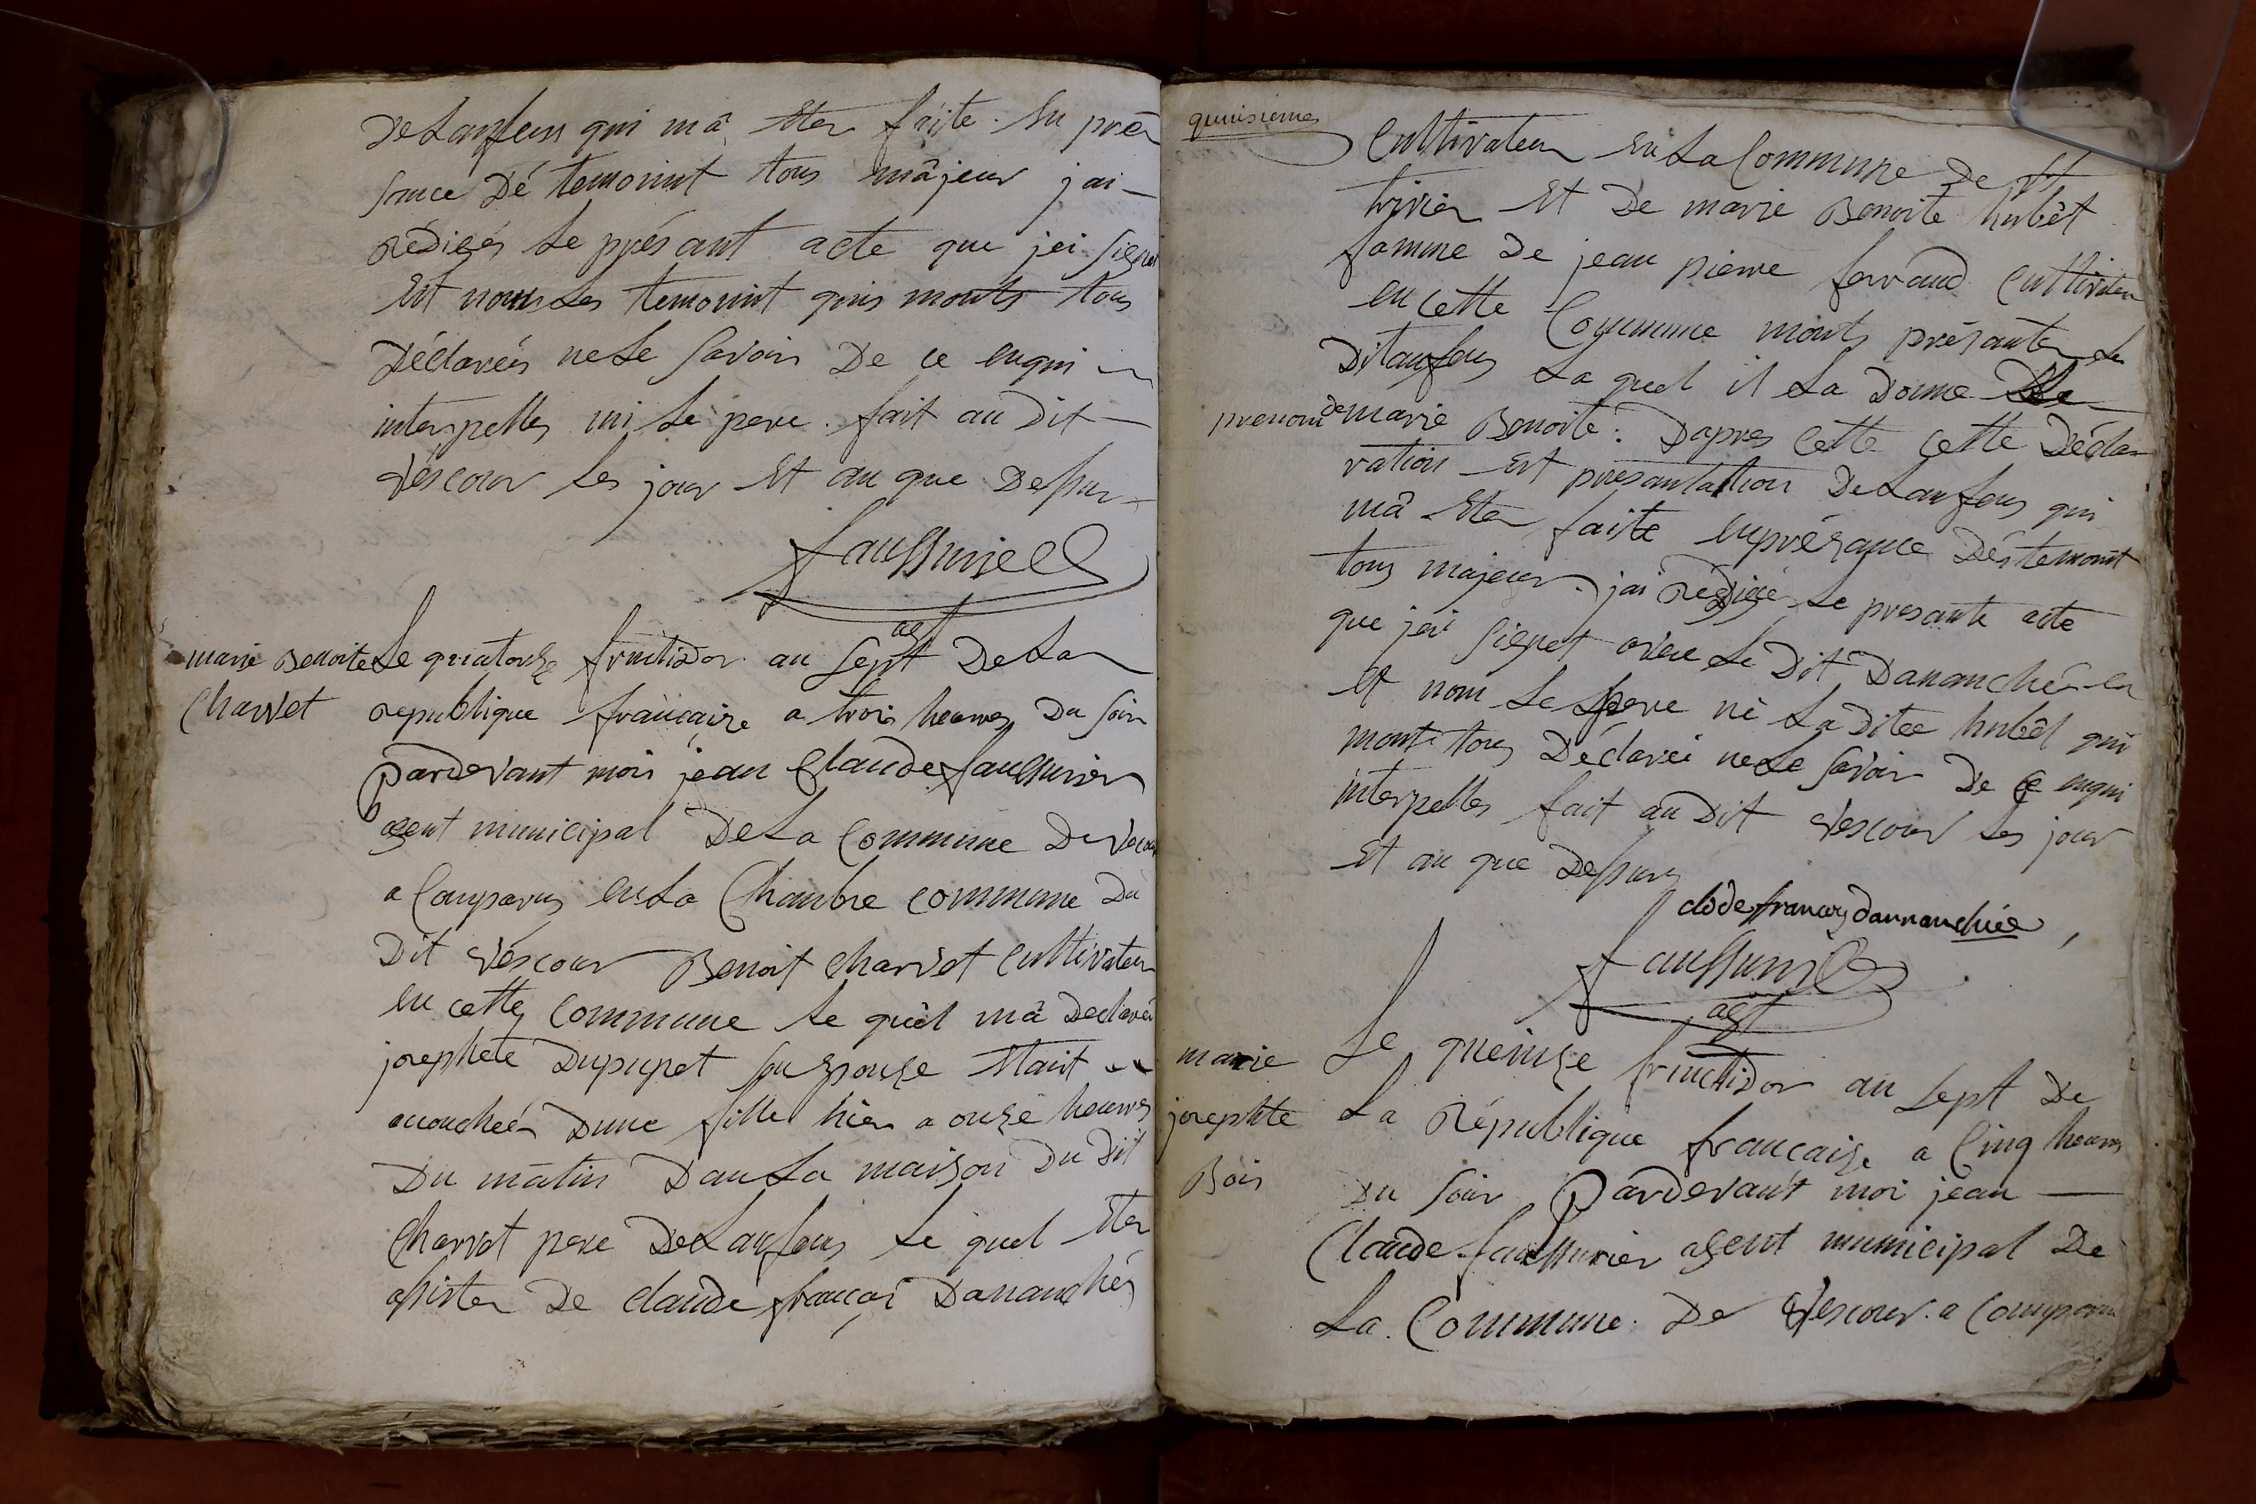 De Lanfens qui mâ Eter faite. En pré
sance Dé temoint tous mâjeur jai
rédigés Le présant acte que jei signet
Et nom Les temoint quis monts tous
Déclareés ne Le Savoir De ce enqui
interpelles ni Le pere. fait au Dit
véscour Les jour Et an que Dessur
faussurier
agt
marie Benoite
Charvet
Le quatorze fructidor an Sept De La
republique francaize a trois heures Du soir
pardevant moi jean Claude faussurier
agent municipal De La Commune De vécour
a Comparus En La Chambre commune Du
Dit véscour Benoit Charvet Cultivateur
en cette Commune Le quêl mâ Declaré
josephete Dupupet son Epouze Etait
acouchée Dune fille hier a onze heures
Du mâtin Dans La maison Du Dit
Charvet pere De Lanfens Le quel Eter
assister De claude françoi Dananchés
quinsieme
Cultivateur En La Commune De st
trivier Et De marie Benoite hubêt
famme De jean pierre ferrand Cultivateur
en cette Commune monts présanter Le
Dit anfens La quel il La Donne Le
prenom de marie Benoite. Dapres Cette Cette Décla
ration Et présantation De Lanfens qui
mâ Eter faite enprésance Dés temoint
tous majeur. jai rédigé Le presante acte
que jei signet avec Le Dit Dananchér
et nom Le pere ni La Ditee hubêt qui
mont tous Déclareé ne Le savoir De ce enqui
interpelles fait au Dit véscour Les jour
Et an que Dessurs
clode francoy dannanchée
faussurier
agt
marie
josephte
Bois
Le queinze fructidor an Sept De
La République francaize a Cinq heures
Du Soir Pardevant moi jean
Claude faussurier agent municipal De
La Commune De Vescour a Comparu